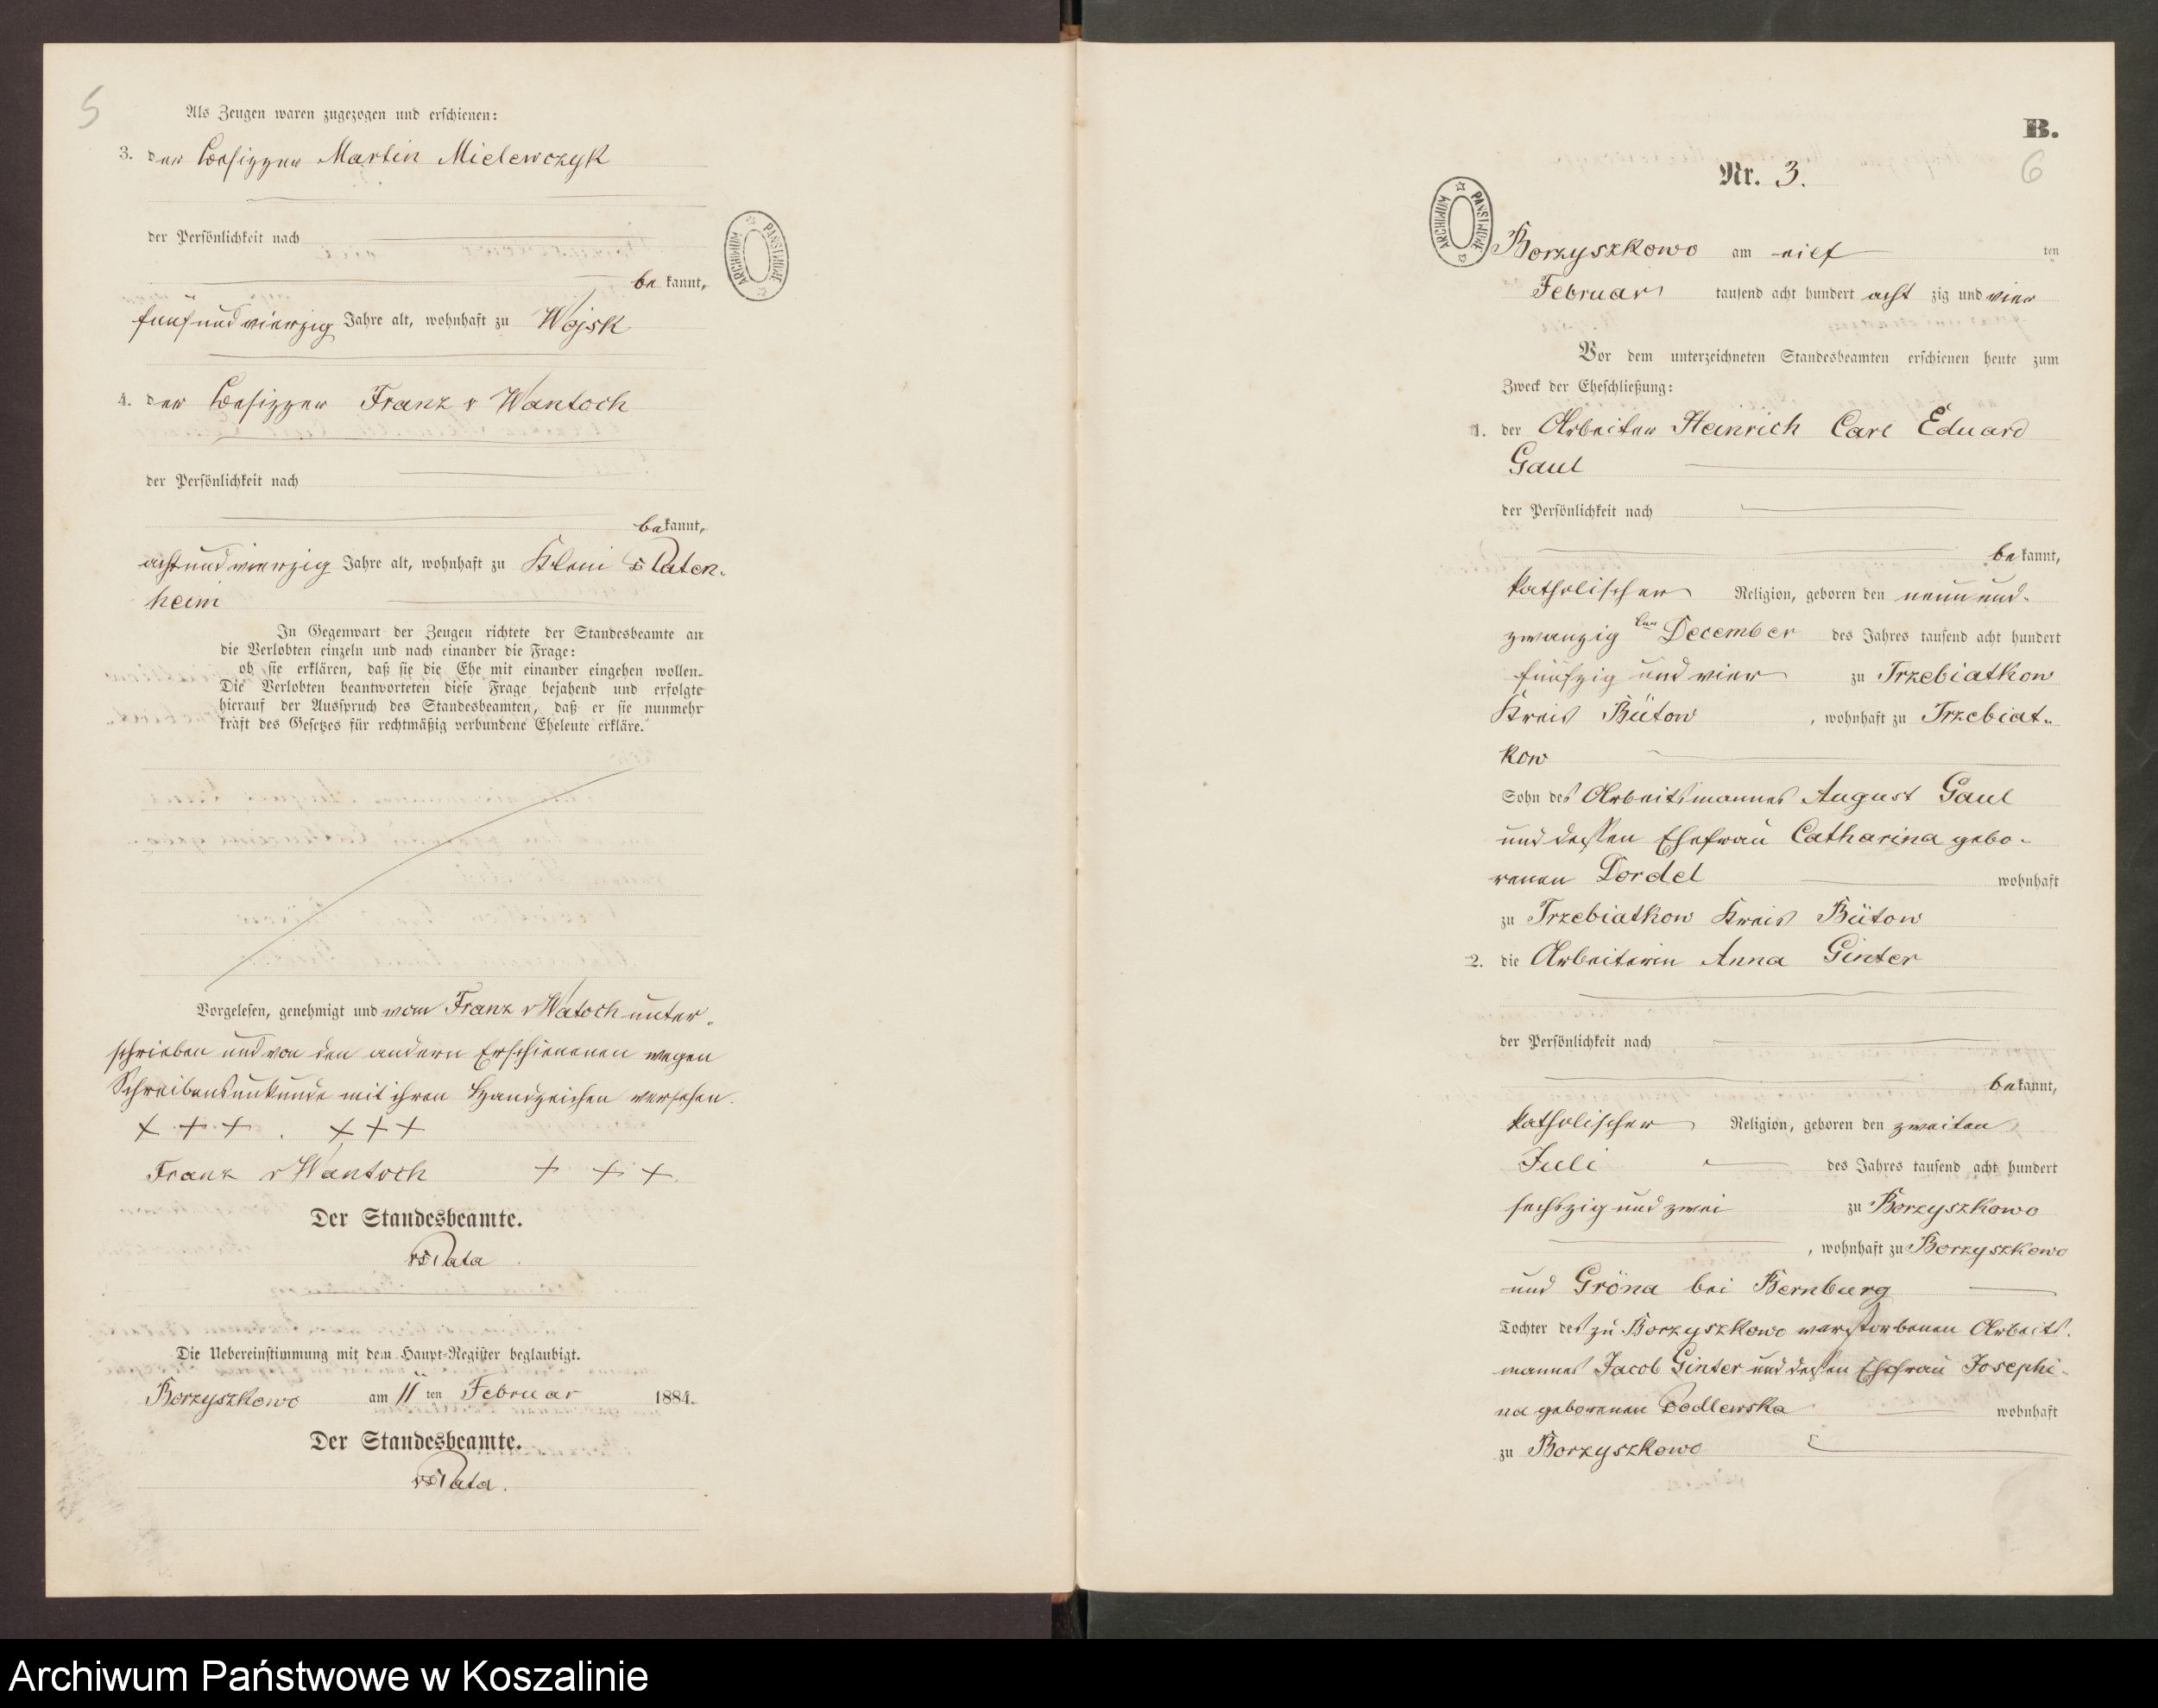 5
Als Zeugen waren zugezogen und erschienen:
3. der Besitzer Martin Mielewczyk
der Persönlichkeit nach
bekannt,
fünfundvierzig Jahre alt, wohnhaft zu Wojsk
4. der Besitzer Franz v Wantoch
der Persönlichkeit nach
bekannt,
achtundvierzig Jahre alt, wohnhaft zu Klein Platen-
heim
In Gegenwart der Zeugen richtete der Standesbeamte an
die Verlobten einzeln und nach einander die Frage:
ob sie erklären, daß sie die Ehe mit einander eingehen wollen.
Die Verlobten beantworteten diese Frage bejahend und erfolgte
hierauf der Ausspruch des Standesbeamten, daß er sie nunmehr
kraft des Gesetzes für rechtmäßig verbundene Eheleute erkläre.
Vorgelesen, genehmigt und vom Franz v Watoch unter-
schrieben und von den andern Erschienenen wegen
Schreibensunkunde mit ihren Handzeichen versehen.
+ + + . + + +
Franz v Wantoch + + +
Der Standesbeamte.
Die Uebereinstimmung mit dem Haupt-Register beglaubigt.
Borzyszkowo am 11 ten Februar 1884.
Der Standesbeamte.
ARCHIWUM PAŃSTWOWE
B.
6
Nr. 3.
ARCHIWUM PAŃSTWOWE
Borzyszkowo am eilf ten
Februar tausend acht hundert acht zig und vier
Vor dem unterzeichneten Standesbeamten erschienen heute zum
Zweck der Eheschließung:
1. der Arbeiter Heinrich Carl Eduard
Gaul
der Persönlichkeit nach
bekannt,
katholischer Religion, geboren den neunund-
zwanzig ten December des Jahres tausend acht hundert
fünfzig und vier zu Trzebiatkow
Kreis Bütow , wohnhaft zu Trzebiat-
kow
Sohn des Arbeitsmannes August Gaul
und dessen Ehefrau Catharina gebo-
renen Dordel wohnhaft
zu Trzebiatkow Kreis Bütow
2. die Arbeiterin Anna Ginter
der Persönlichkeit nach
bekannt,
katholischer Religion, geboren den zweiten
Juli des Jahres tausend acht hundert
sechszig und zwei zu Borzyszkowo
, wohnhaft zu Borzyszkowo
und Gröna bei Bernburg
Tochter des zu Borzyszkowo verstorbenen Arbeits-
mannes Jacob Ginter und dessen Ehefrau Josephi-
na geborenen Podlewska wohnhaft
zu Borzyszkowo
Archiwum Państwowe w Koszalinie